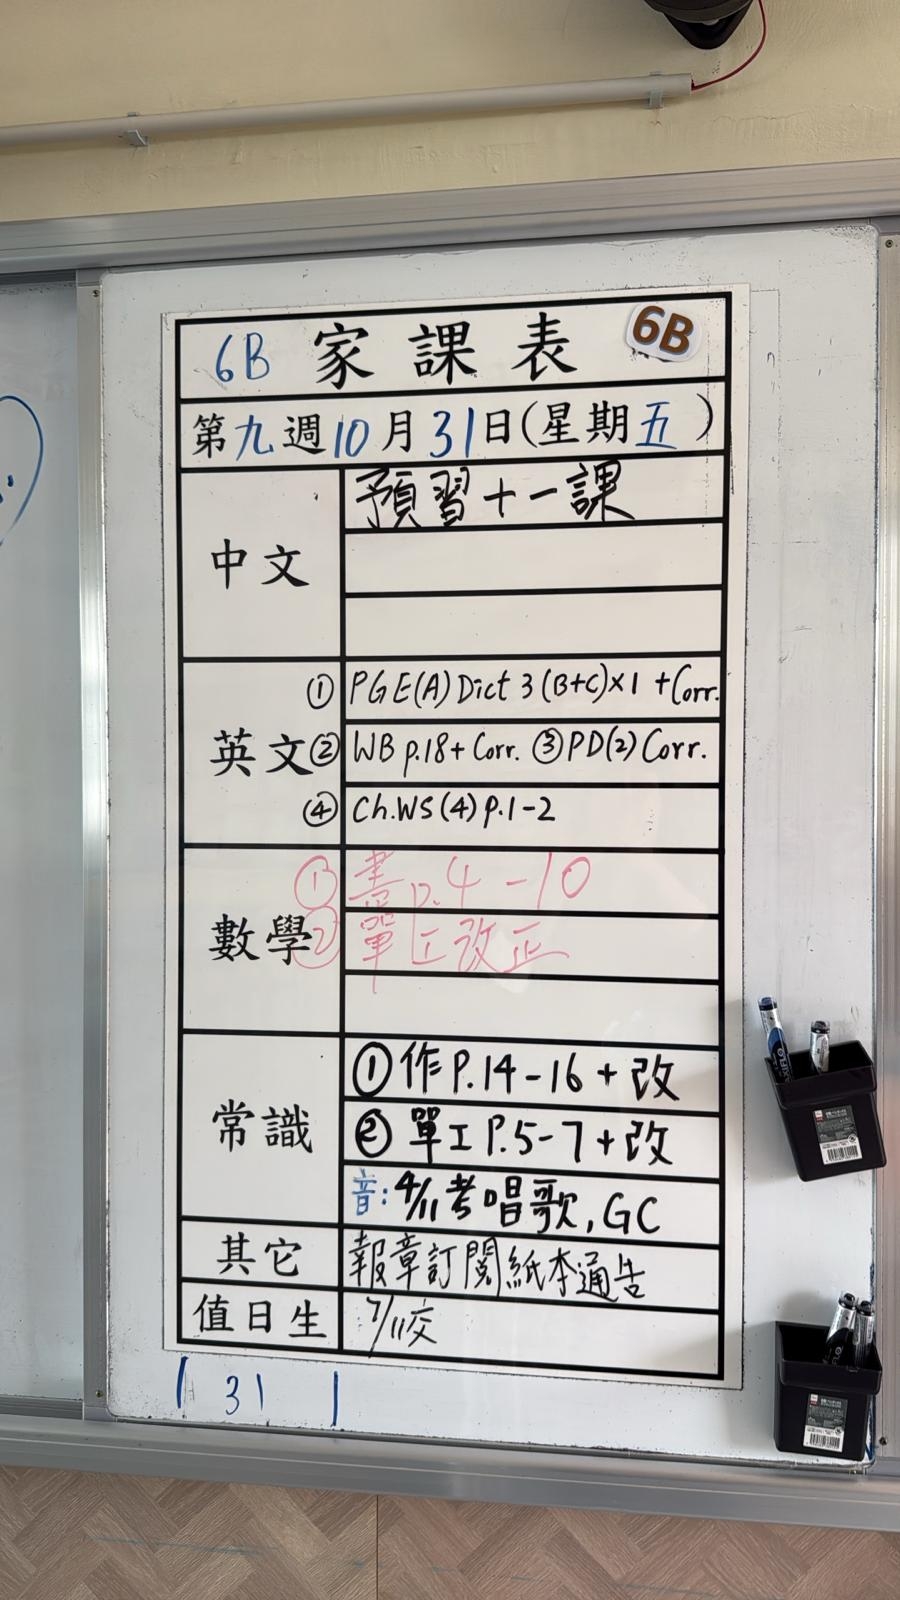 6B 家課表 6B
第九週10月31日(星期五)
中文
預習十一課
英文
① PGE(A) Dict 3 (B+C)×1 +Corr.
② WB p.18+ Corr. ③ PD(2) Corr.
④ Ch.WS (4) p.1-2
數學
① 書 p.4 -10
② 單工改正
常識
① 作 P.14-16 + 改
② 單工 P.5-7 + 改
音: 4/11考唱歌, GC
其它
報章訂閱紙本通告
值日生
7/11交
31